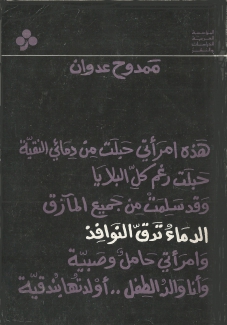 المؤسسة
العربية
للدراسات
والنشر
ممدوح عدوان
هذه امرأتي حبلت من دمائي النقيّة
حبلت رغم كلّ البلايا
وقد سلمت من جميع المآزق
الدماءُ تدقّ النوافذ
وامرأتي حامل وصبيّة
وأنا والد الطفل .. أولدتها بندقيّة